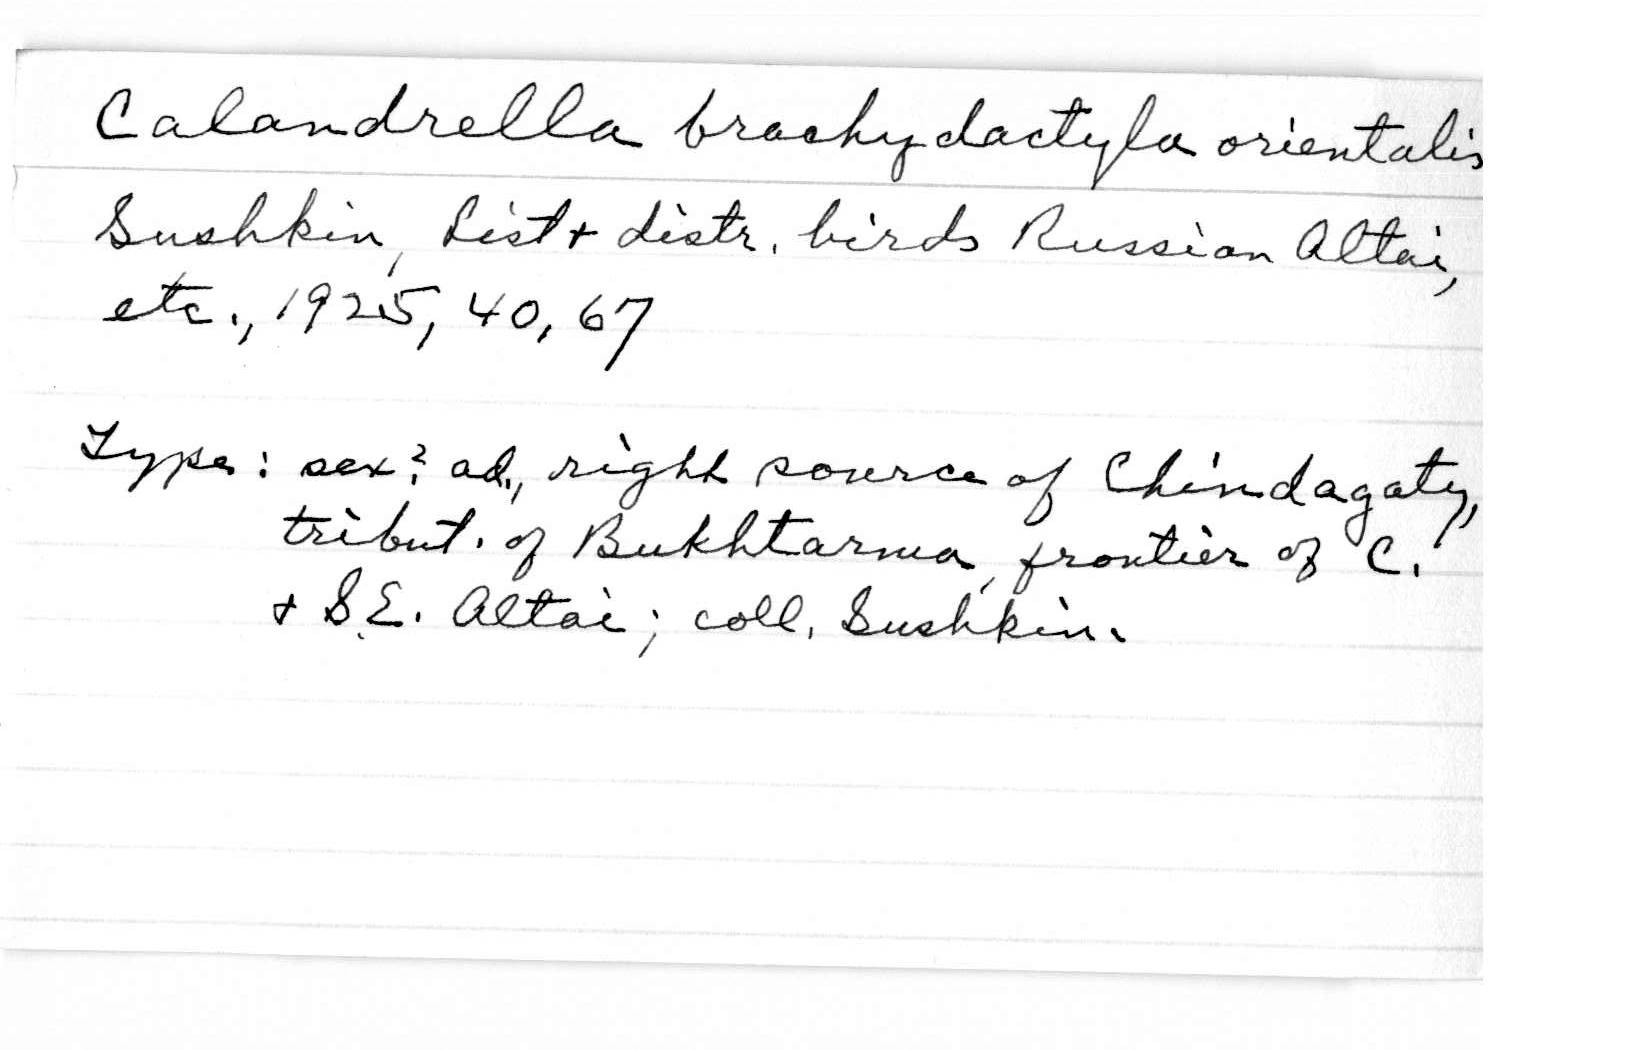 Calandrella brachydactyla orientalis
Sushkin, List + distr. birds Russian Altai,
etc., 1925, 40, 67
Type: sex? ad., right source of Chindagaty,
tribut. of Bukhtarma, frontier of C.
+ S.E. Altai; coll. Sushkin.